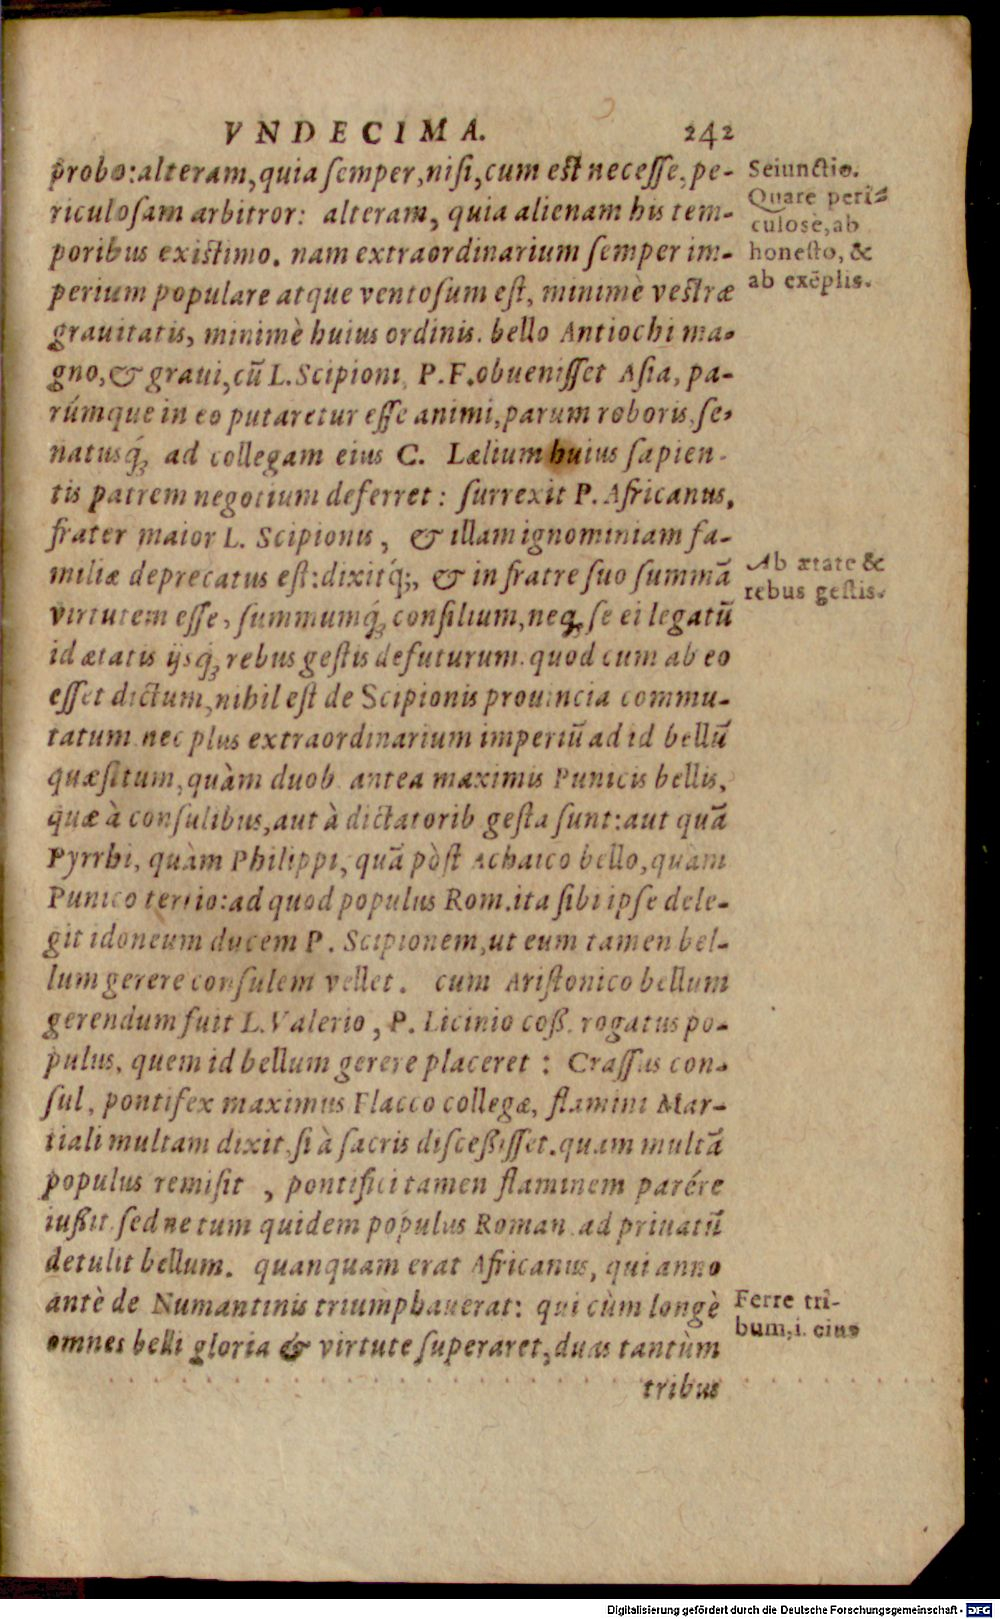 VNDECIMA. 242
probo: alteram, quia semper, nisi, cum est necesse, pe-
riculosam arbitror: alteram, quia alienam his tem-
poribus existimo. nam extraordinarium semper im-
perium populare atque ventosum est, minimè vestræ
grauitatis, minimè huius ordinis. bello Antiochi ma-
gno, & graui, cū L. Scipioni, P. F. obuenisset Asia, pa-
rúmque in eo putaretur esse animi, parum roboris, se-
natusq́; ad collegam eius C. Lælium huius sapien-
tis patrem negotium deferret: surrexit P. Africanus,
frater maior L. Scipionis, & illam ignominiam fa-
miliæ deprecatus est: dixitq́;, & in fratre suo summā
virtutem esse, summumq́; consilium, neq; se ei legatū
id ætatis ijsq́; rebus gestis defuturum. quod cum ab eo
esset dictum, nihil est de Scipionis prouincia commu-
tatum. nec plus extraordinarium imperiū ad id bellū
quæsitum, quàm duob. antea maximis Punicis bellis,
quæ à consulibus, aut à dictatorib gesta sunt: aut quā
Pyrrhi, quàm Philippi, quā pòst Achaico bello, quàm
Punico tertio: ad quod populus Rom. ita sibi ipse dele-
git idoneum ducem P. Scipionem, ut eum tamen bel-
lum gerere consulem vellet. cum Aristonico bellum
gerendum fuit L. Valerio, P. Licinio coß. rogatus po-
pulus, quem id bellum gerere placeret: Crassus con-
sul, pontifex maximus Flacco collegæ, flamini Mar-
tiali multam dixit, si à sacris disceßisset. quam multā
populus remisit, pontifici tamen flaminem parére
iußit. sed ne tum quidem populus Roman. ad priuatū
detulit bellum. quanquam erat Africanus, qui anno
antè de Numantinis triumphauerat: qui cùm longè
omnes belli gloria & virtute superaret, duas tantùm
tribus
Seiunctio.
Quare peri-
culosè, ab
honesto, &
ab exēplis.
Ab ætate &
rebus gestis.
Ferre tri-
bum, i. eius
Digitalisierung gefördert durch die Deutsche Forschungsgemeinschaft - DFG